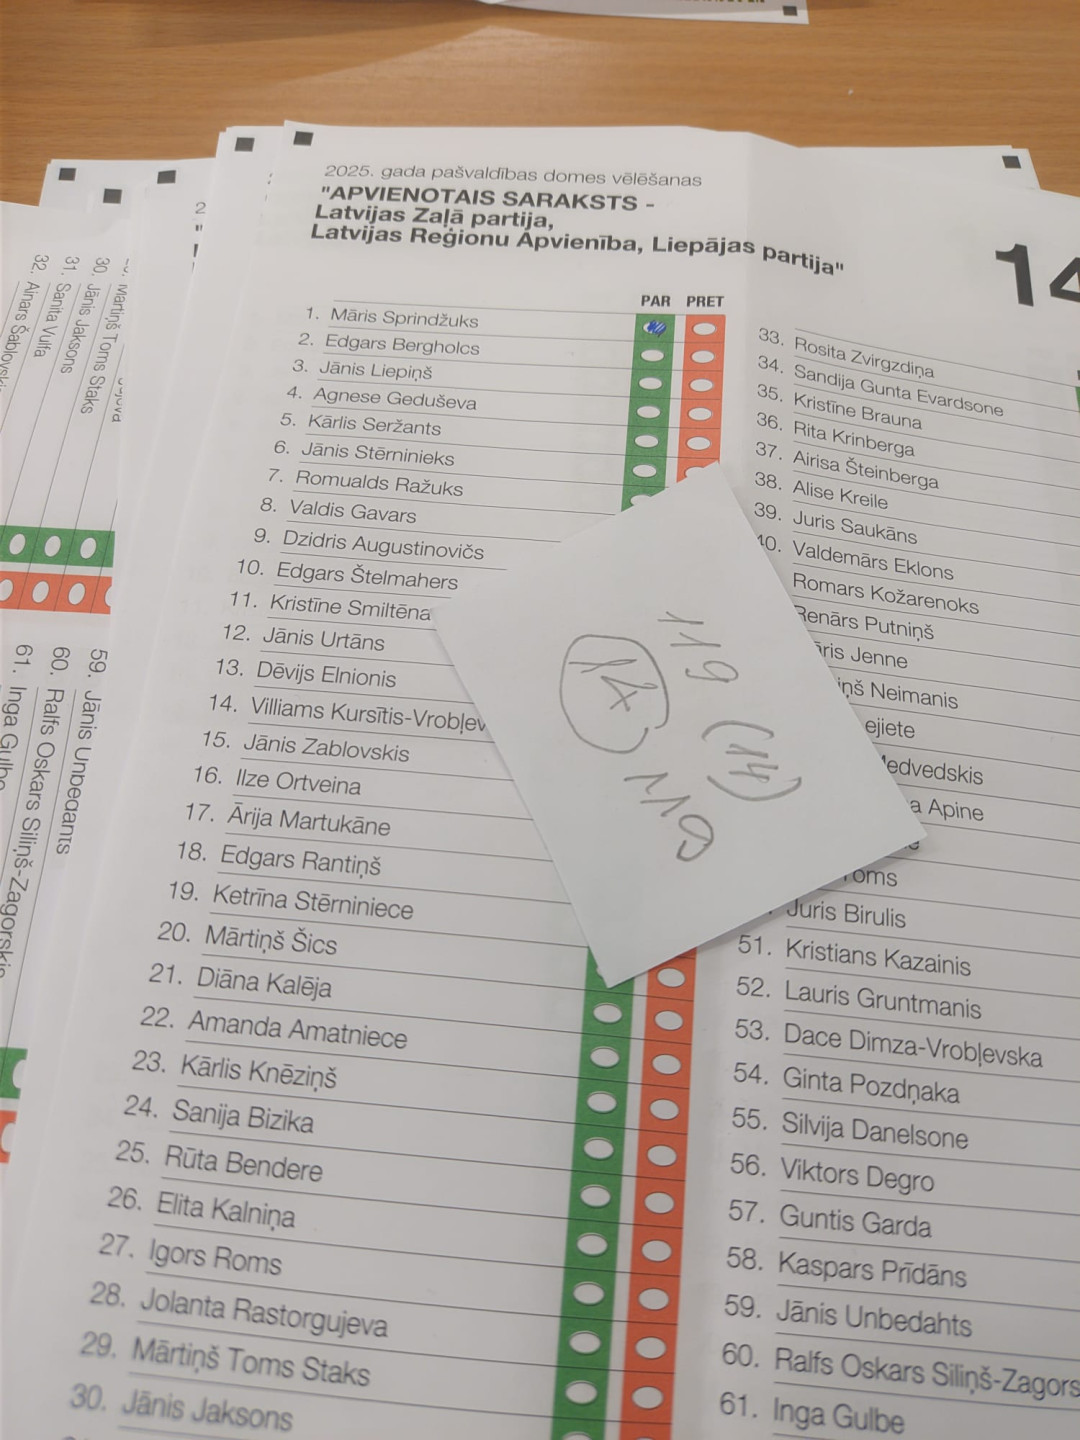 2025. gada pašvaldības domes vēlēšanas
"APVIENOTAIS SARAKSTS -
Latvijas Zaļā partija,
Latvijas Reģionu Apvienība, Liepājas partija"
14
PAR PRET
1. Māris Sprindžuks
2. Edgars Bergholcs
3. Jānis Liepiņš
4. Agnese Geduševa
5. Kārlis Seržants
6. Jānis Stērninieks
7. Romualds Ražuks
8. Valdis Gavars
9. Dzidris Augustinovičs
10. Edgars Štelmahers
11. Kristīne Smiltēna
12. Jānis Urtāns
13. Dēvijs Elnionis
14. Villiams Kursītis-Vrobļev
15. Jānis Zablovskis
16. Ilze Ortveina
17. Ārija Martukāne
18. Edgars Rantiņš
19. Ketrīna Stērniniece
20. Mārtiņš Šics
21. Diāna Kalēja
22. Amanda Amatniece
23. Kārlis Knēziņš
24. Sanija Bizika
25. Rūta Bendere
26. Elita Kalniņa
27. Igors Roms
28. Jolanta Rastorgujeva
29. Mārtiņš Toms Staks
30. Jānis Jaksons
33. Rosita Zvirgzdiņa
34. Sandija Gunta Evardsone
35. Kristīne Brauna
36. Rita Krinberga
37. Airisa Šteinberga
38. Alise Kreile
39. Juris Saukāns
40. Valdemārs Eklons
Romars Kožarenoks
Renārs Putniņš
āris Jenne
iņš Neimanis
ejiete
Medvedskis
a Apine
Toms
Juris Birulis
51. Kristians Kazainis
52. Lauris Gruntmanis
53. Dace Dimza-Vrobļevska
54. Ginta Pozdņaka
55. Silvija Danelsone
56. Viktors Degro
57. Guntis Garda
58. Kaspars Prīdāns
59. Jānis Unbedahts
60. Ralfs Oskars Siliņš-Zagors
61. Inga Gulbe
119 (14)
14 119
30. Jānis Jaksons
31. Sanita Vulfa
32. Ainars Šablovskis
59. Jānis Unbedahts
60. Ralfs Oskars Siliņš-Zagorskis
61. Inga Gulbe